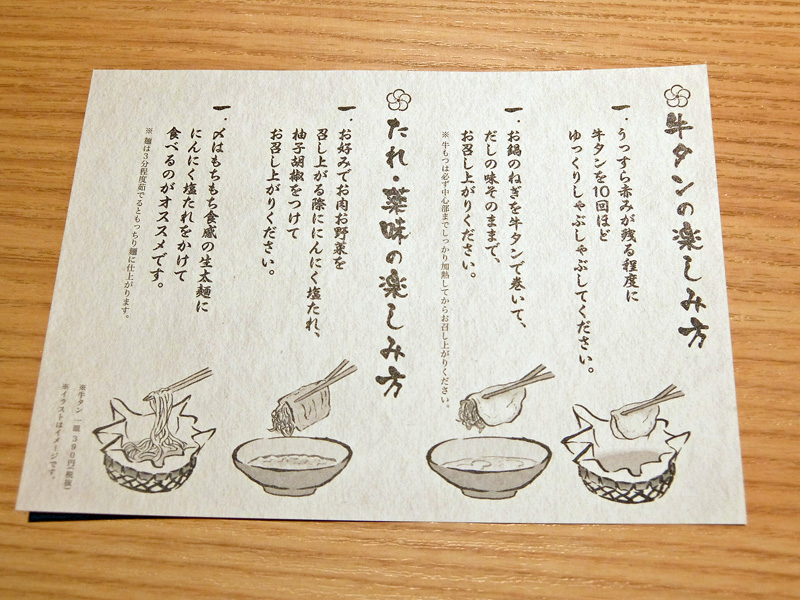 牛タンの楽しみ方
一．うっすら赤みが残る程度に
牛タンを10回ほど
ゆっくりしゃぶしゃぶしてください。
一．お鍋のねぎを牛タンで巻いて、
だしの味そのままで、
お召し上がりください。
※牛もつは必ず中心部までしっかり加熱してからお召し上がりください。
たれ・薬味の楽しみ方
一．お好みでお肉お野菜を
召し上がる際ににんにく塩たれ、
柚子胡椒をつけて
お召し上がりください。
一．〆はもちもち食感の生太麺に
にんにく塩たれをかけて
食べるのがオススメです。
※麺は3分程度茹でるともっちり麺に仕上がります。
※牛タン 一皿 390円(税抜)
※イラストはイメージです。